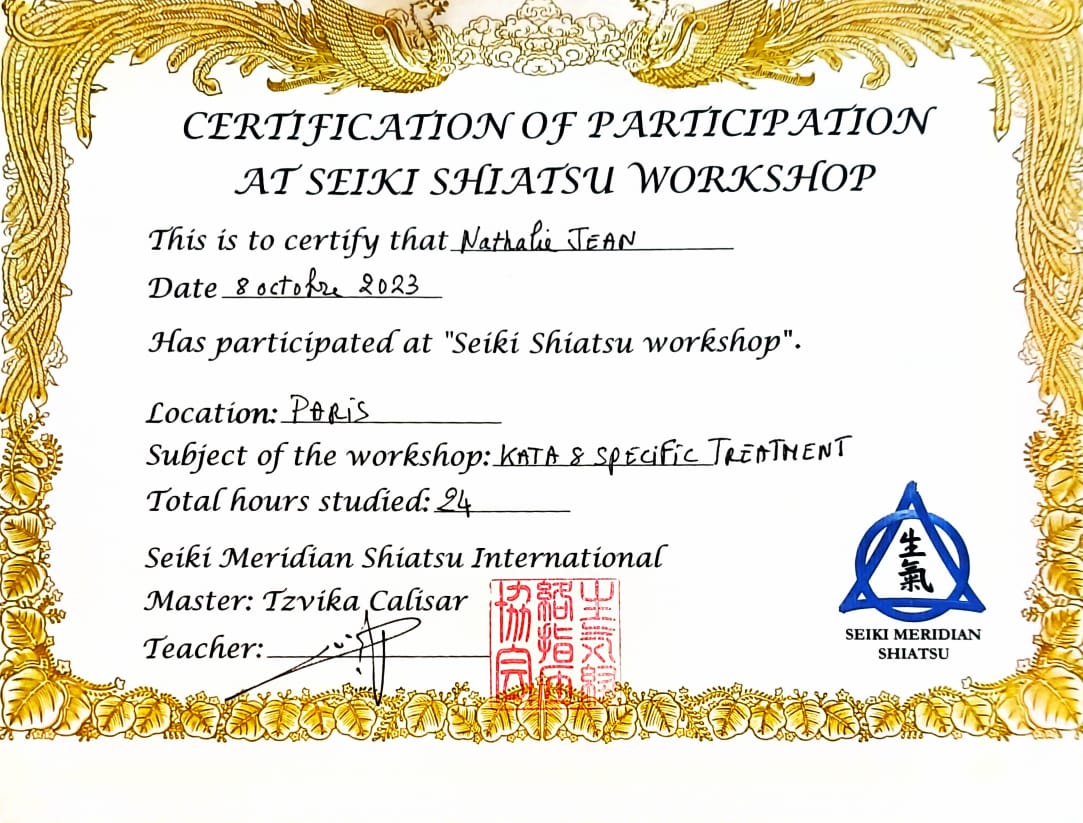 CERTIFICATION OF PARTICIPATION
AT SEIKI SHIATSU WORKSHOP
This is to certify that Nathalie JEAN
Date 8 octobre 2023
Has participated at "Seiki Shiatsu workshop".
Location: PARIS
Subject of the workshop: KATA & SPECIFIC TREATMENT
Total hours studied: 24
Seiki Meridian Shiatsu International
Master: Tzvika Calisar
Teacher:
生氣
SEIKI MERIDIAN
SHIATSU